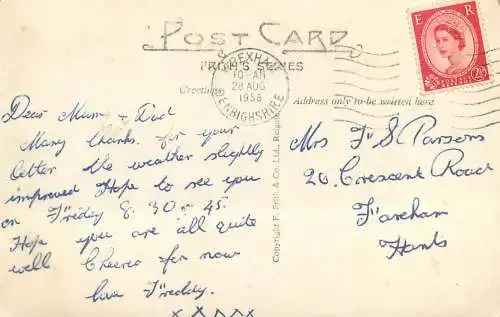 POST CARD
FRITH'S SERIES
Greetings
Address only to be written here
WREXHAM
10-AM
28 AUG
1958
DENBIGHSHIRE
E R
2½
Dear Mum & Dad
Many thanks for your
letter the weather slightly
improved Hope to see you
on Friday 8.30 - 45
Hope you are all quite
well. Cheerio for now
love Freddy.
x x x x x
Copyright F. Frith & Co. Ltd., Reigate
Mrs F S Parsons
20, Crescent Road
Fareham
Hants